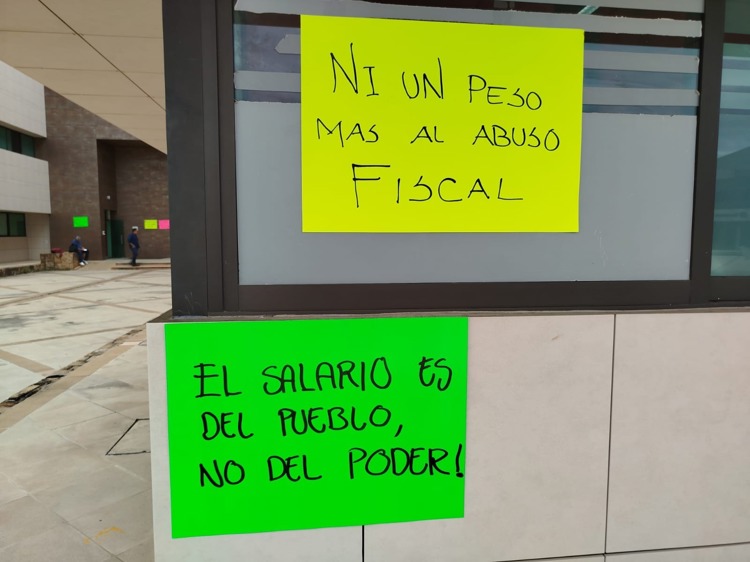 NI UN PESO
MAS AL ABUSO
FISCAL
EL SALARIO ES
DEL PUEBLO,
NO DEL PODER!